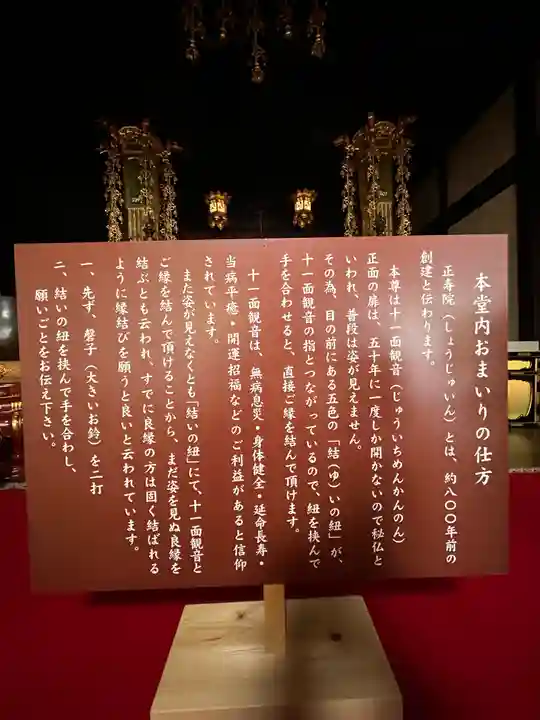 本堂内おまいりの仕方
正寿院（しょうじゅいん）とは、約八〇〇年前の
創建と伝わります。
本尊は十一面観音（じゅういちめんかんのん）
正面の扉は、五十年に一度しか開かないので秘仏と
いわれ、普段は姿が見えません。
その為、目の前にある五色の「結（ゆ）いの紐」が、
十一面観音の指とつながっているので、紐を挟んで
手を合わせると、直接ご縁を結んで頂けます。
十一面観音は、無病息災・身体健全・延命長寿・
当病平癒・開運招福などのご利益があると信仰
されています。
また姿が見えなくとも「結いの紐」にて、十一面観音と
ご縁を結んで頂けることから、まだ姿を見ぬ良縁を
結ぶとも云われ、すでに良縁の方は固く結ばれる
ように縁結びを願うと良いと云われています。
一、先ず、磬子（大きいお鈴）を二打
二、結いの紐を挟んで手を合わし、
願いごとをお伝え下さい。